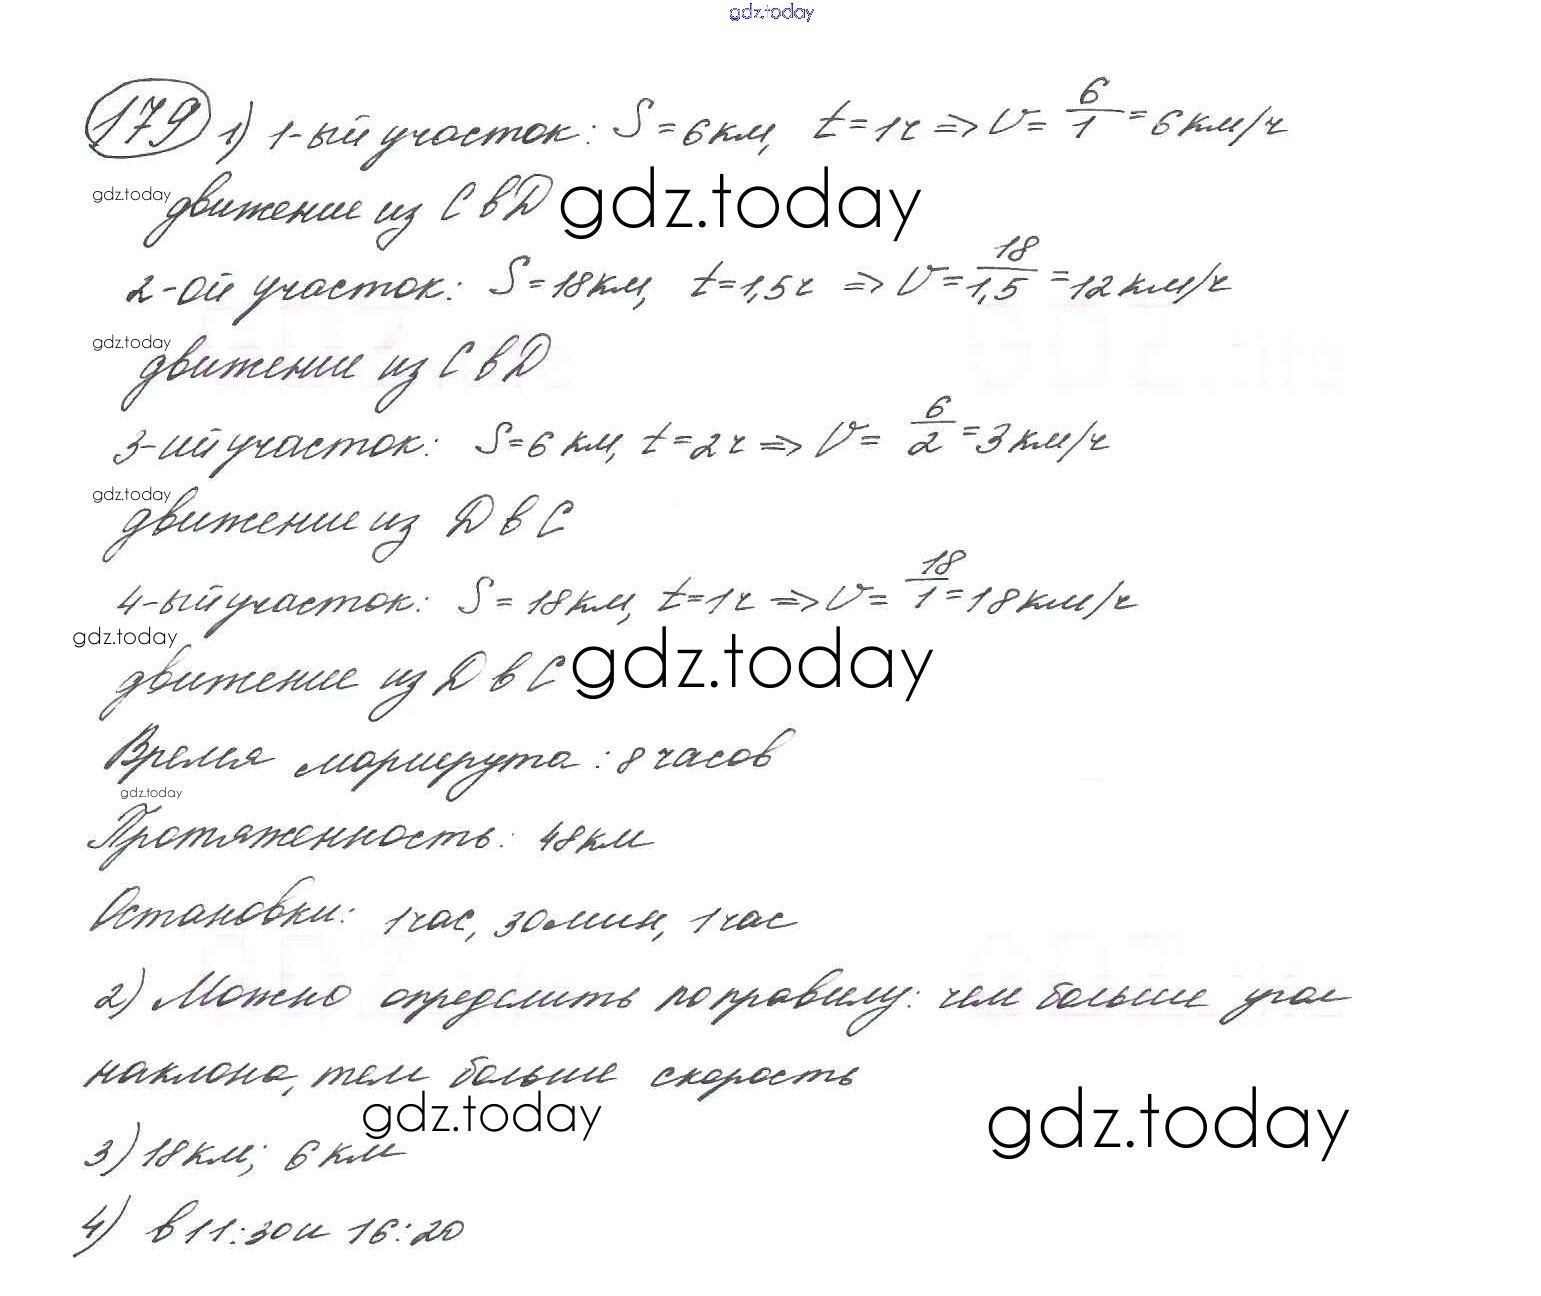 gdz.today
179 1) 1-ый участок: S = 6 км, t = 1ч => V = 6/1 = 6 км/ч
gdz.today движение из C в D gdz.today
2-ой участок: S = 18 км, t = 1,5 ч => V = 18/1,5 = 12 км/ч
gdz.today
движение из C в D
3-ий участок: S = 6 км, t = 2 ч => V = 6/2 = 3 км/ч
gdz.today
движение из D в C
4-ый участок: S = 18 км, t = 1 ч => V = 18/1 = 18 км/ч
gdz.today gdz.today
движение из D в C
Время маршрута: 8 часов
gdz.today
Протяженность: 48 км
Остановки: 1 час, 30 мин, 1 час
2) Можно определить по правилу: чем больше угол
наклона, тем больше скорость
gdz.today gdz.today
3) 18 км; 6 км
4) в 11:30 и 16:20